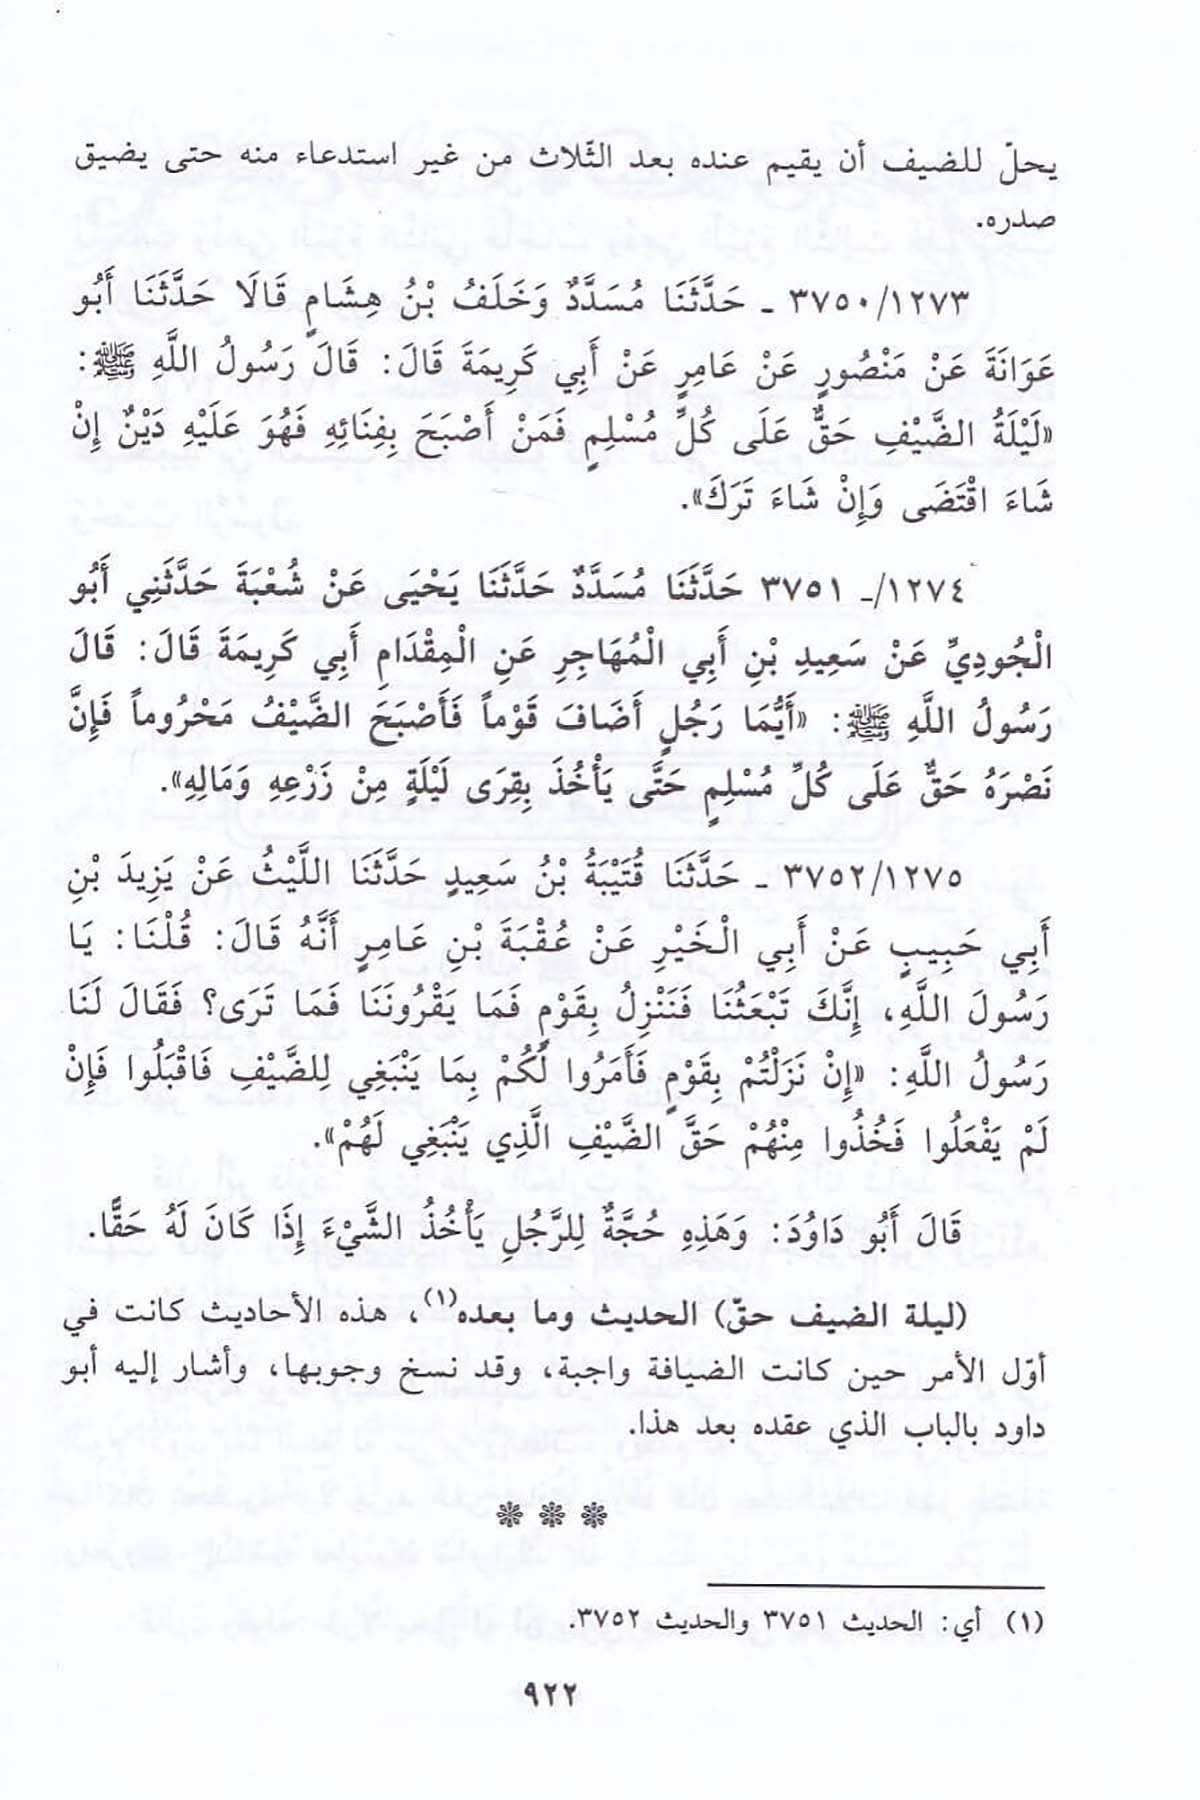 يحلّ للضيف أن يقيم عنده بعد الثّلاث من غير استدعاء منه حتى يضيق
صدره.
٣٧٥٠/١٢٧٣ ـ حَدَّثَنَا مُسَدَّدٌ وَخَلَفُ بْنُ هِشَامٍ قَالَا حَدَّثَنَا أَبُو
عَوَانَةَ عَنْ مَنْصُورٍ عَنْ عَامِرٍ عَنْ أَبِي كَرِيمَةَ قَالَ: قَالَ رَسُولُ اللَّهِ ﷺ:
«لَيْلَةُ الضَّيْفِ حَقٌّ عَلَى كُلِّ مُسْلِمٍ فَمَنْ أَصْبَحَ بِفِنَائِهِ فَهُوَ عَلَيْهِ دَيْنٌ إِنْ
شَاءَ اقْتَضَى وَإِنْ شَاءَ تَرَكَ».
١٢٧٤/ـ ٣٧٥١ حَدَّثَنَا مُسَدَّدٌ حَدَّثَنَا يَحْيَى عَنْ شُعْبَةَ حَدَّثَنِي أَبُو
الْجُودِيِّ عَنْ سَعِيدِ بْنِ أَبِي الْمُهَاجِرِ عَنِ الْمِقْدَامِ أَبِي كَرِيمَةَ قَالَ: قَالَ
رَسُولُ اللَّهِ ﷺ: «أَيُّمَا رَجُلٍ أَضَافَ قَوْماً فَأَصْبَحَ الضَّيْفُ مَحْرُوماً فَإِنَّ
نَصْرَهُ حَقٌّ عَلَى كُلِّ مُسْلِمٍ حَتَّى يَأْخُذَ بِقِرَى لَيْلَةٍ مِنْ زَرْعِهِ وَمَالِهِ».
٣٧٥٢/١٢٧٥ ـ حَدَّثَنَا قُتَيْبَةُ بْنُ سَعِيدٍ حَدَّثَنَا اللَّيْثُ عَنْ يَزِيدَ بْنِ
أَبِي حَبِيبٍ عَنْ أَبِي الْخَيْرِ عَنْ عُقْبَةَ بْنِ عَامِرٍ أَنَّهُ قَالَ: قُلْنَا: يَا
رَسُولَ اللَّهِ، إِنَّكَ تَبْعَثُنَا فَنَنْزِلُ بِقَوْمٍ فَمَا يَقْرُونَنَا فَمَا تَرَى؟ فَقَالَ لَنَا
رَسُولُ اللَّهِ: «إِنْ نَزَلْتُمْ بِقَوْمٍ فَأَمَرُوا لَكُمْ بِمَا يَنْبَغِي لِلضَّيْفِ فَاقْبَلُوا فَإِنْ
لَمْ يَفْعَلُوا فَخُذُوا مِنْهُمْ حَقَّ الضَّيْفِ الَّذِي يَنْبَغِي لَهُمْ».
قَالَ أَبُو دَاوُدَ: وَهَذِهِ حُجَّةٌ لِلرَّجُلِ يَأْخُذُ الشَّيْءَ إِذَا كَانَ لَهُ حَقًّا.
(ليلة الضيف حقّ) الحديث وما بعده(١)، هذه الأحاديث كانت في
أوّل الأمر حين كانت الضيافة واجبة، وقد نسخ وجوبها، وأشار إليه أبو
داود بالباب الذي عقده بعد هذا.
❋ ❋ ❋
(١) أي: الحديث ٣٧٥١ والحديث ٣٧٥٢.
٩٢٢